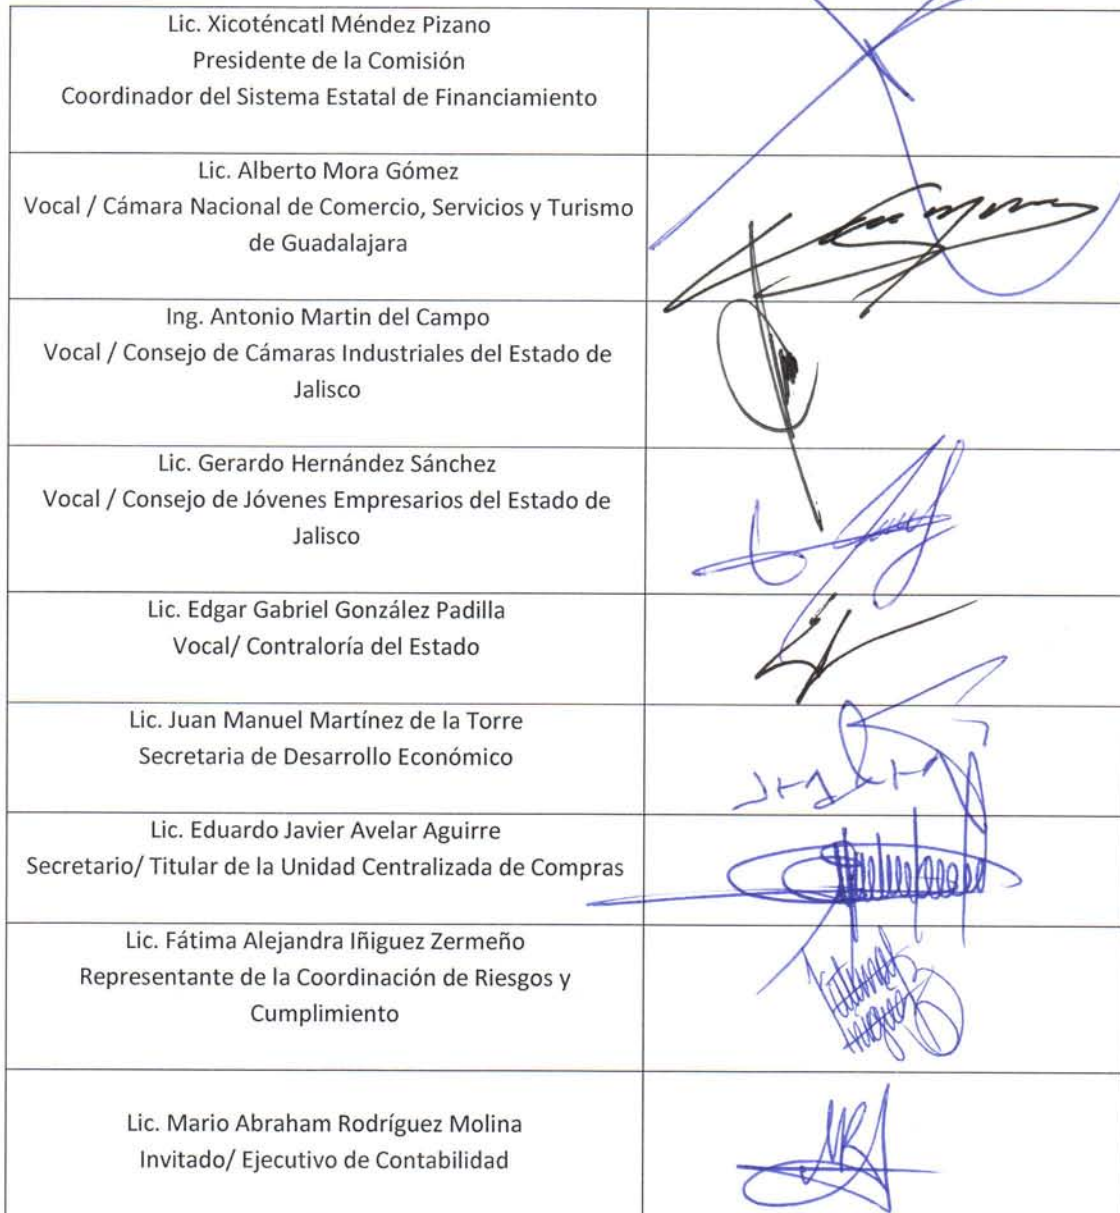 Lic. Xicoténcatl Méndez Pizano
Presidente de la Comisión
Coordinador del Sistema Estatal de Financiamiento
Lic. Alberto Mora Gómez
Vocal / Cámara Nacional de Comercio, Servicios y Turismo
de Guadalajara
Ing. Antonio Martin del Campo
Vocal / Consejo de Cámaras Industriales del Estado de
Jalisco
Lic. Gerardo Hernández Sánchez
Vocal / Consejo de Jóvenes Empresarios del Estado de
Jalisco
Lic. Edgar Gabriel González Padilla
Vocal/ Contraloría del Estado
Lic. Juan Manuel Martínez de la Torre
Secretaria de Desarrollo Económico
Lic. Eduardo Javier Avelar Aguirre
Secretario/ Titular de la Unidad Centralizada de Compras
Lic. Fátima Alejandra Iñiguez Zermeño
Representante de la Coordinación de Riesgos y
Cumplimiento
Lic. Mario Abraham Rodríguez Molina
Invitado/ Ejecutivo de Contabilidad